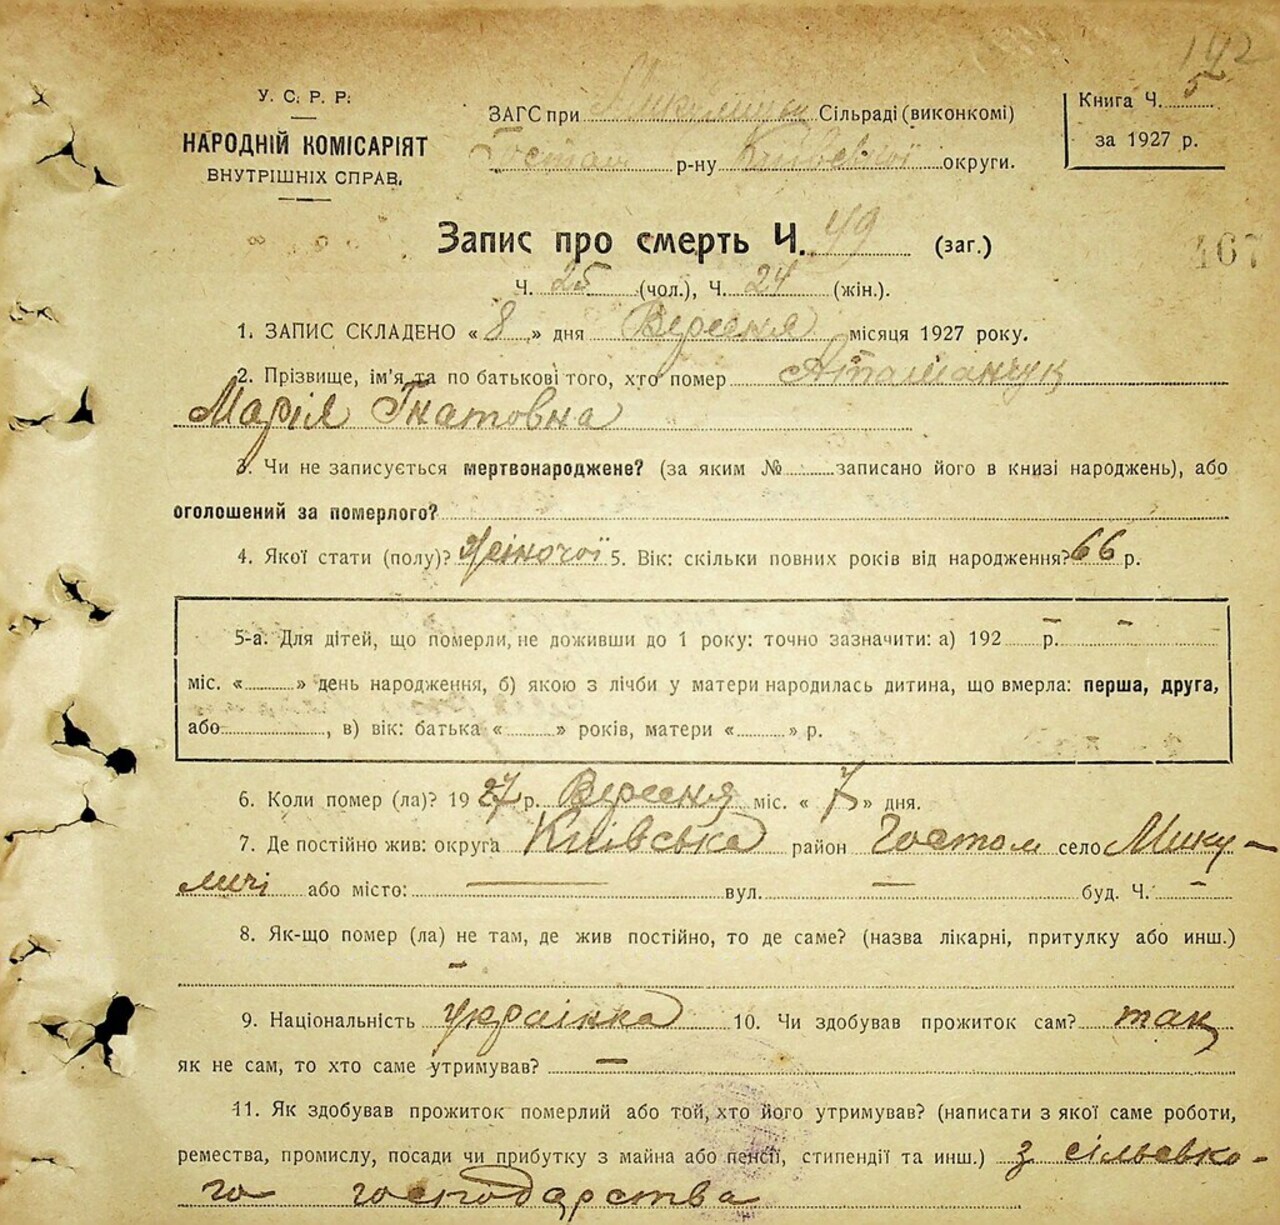 142
У. С. Р. Р.
НАРОДНІЙ КОМІСАРІЯТ
ВНУТРІШНІХ СПРАВ.
ЗАГС при Микулицькій Сільраді (виконкомі)
Гостом р-ну Київської округи.
Книга Ч. 5
за 1927 р.
Запис про смерть Ч. 49 (заг.)
467
Ч. 25 (чол.), Ч. 24 (жін.).
1. ЗАПИС СКЛАДЕНО «8» дня Вересня місяця 1927 року.
2. Прізвище, ім'я та по батькові того, хто помер Атаманчук
Марія Гнатовна
3. Чи не записується мертвонароджене? (за яким № записано його в книзі народжень), або
оголошений за померлого?
4. Якої стати (полу)? Жіночої 5. Вік: скільки повних років від народження? 66 р.
5-а. Для дітей, що померли, не доживши до 1 року: точно зазначити: а) 192 – р. –
міс. « » день народження, б) якою з лічби у матери народилась дитина, що вмерла: перша, друга,
або , в) вік: батька « » років, матери « » р.
6. Коли помер (ла)? 1927 р. Вересня міс. «7» дня.
7. Де постійно жив: округа Київська район Гостом село Мику-
личі або місто: — вул. — буд. Ч. –
8. Як-що помер (ла) не там, де жив постійно, то де саме? (назва лікарні, притулку або инш.)
–
9. Національність українка 10. Чи здобував прожиток сам? так
як не сам, то хто саме утримував? —
11. Як здобував прожиток померлий або той, хто його утримував? (написати з якої саме роботи,
ремества, промислу, посади чи прибутку з майна або пенсії, стипендії та инш.) з сільсько-
го господарства